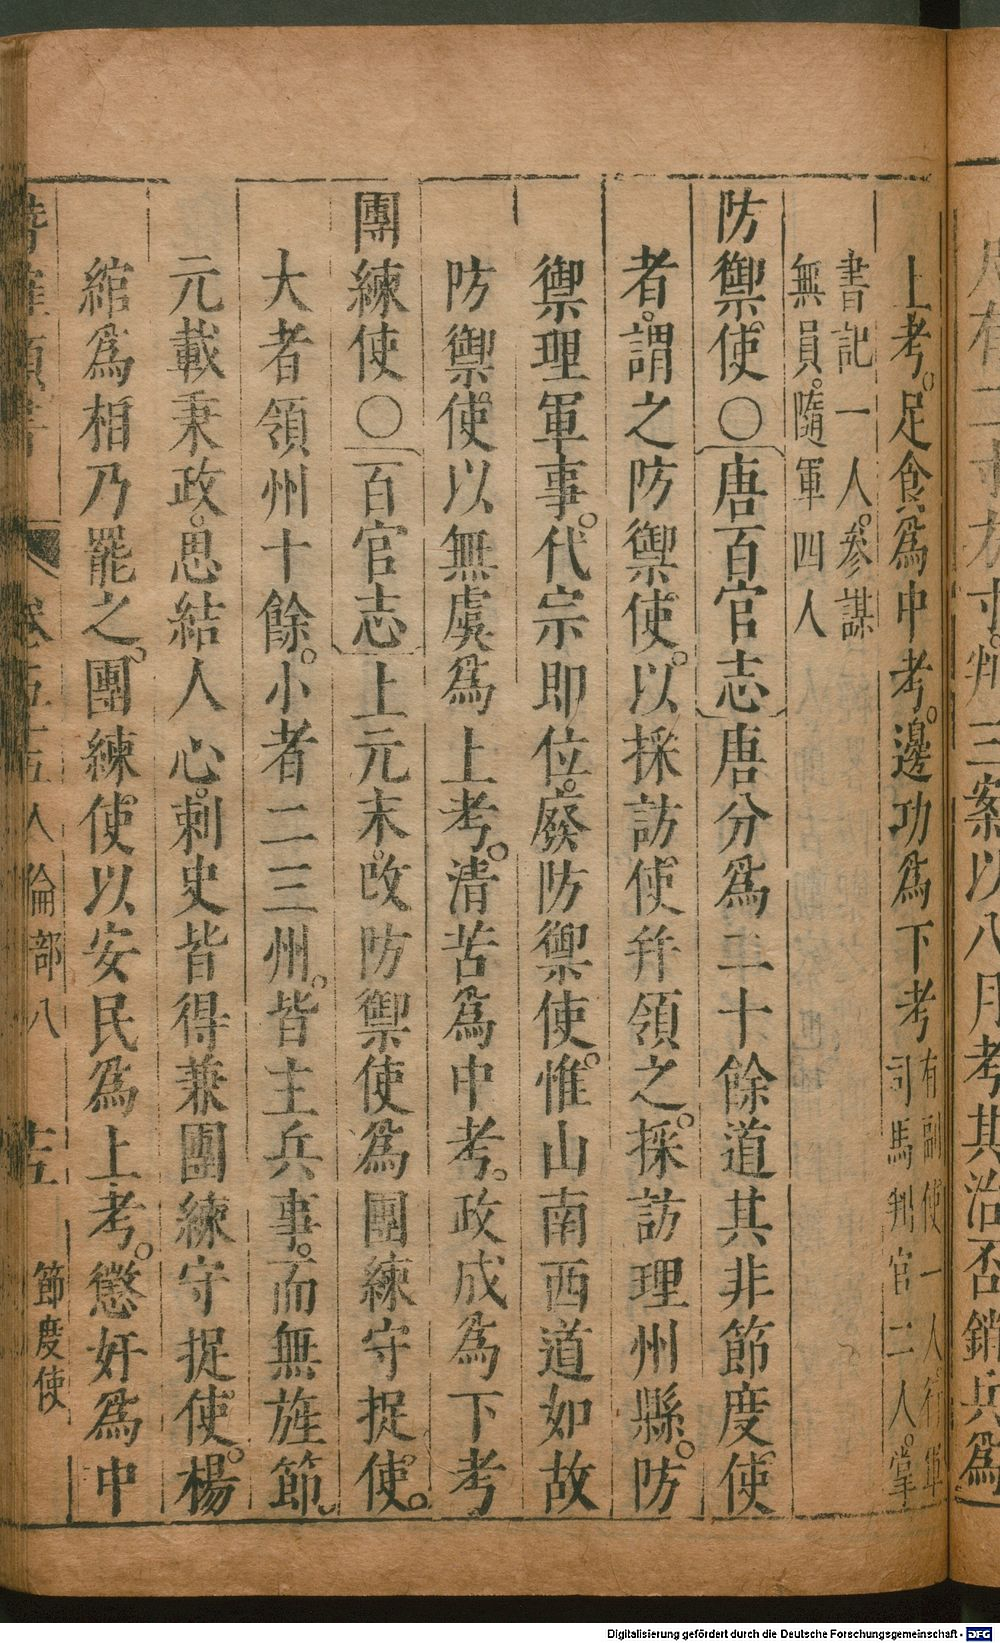 尺有二寸方寸判三案以八月考其治否銷兵爲
上考。足食爲中考。邊功爲下考有副使一人。行軍司馬判官二人。掌
書記一人。參謀
無員。隨軍四人
防禦使○唐百官志唐分爲二十餘道其非節度使
者。謂之防禦使。以採訪使幷領之。採訪理州縣。防
禦理軍事。代宗卽位。廢防禦使。惟山南西道如故
防禦使以無虞爲上考。清苦爲中考。政成爲下考
團練使○百官志上元末。改防禦使爲團練守捉使。
大者領州十餘。小者二三州。皆主兵事。而無旌節。
元載秉政。思結人心。刺史皆得兼團練守捉使。楊
綰爲相乃罷之。團練使以安民爲上考。懲奸爲中
潛確類書 卷五十五 人倫部八 十五 節度使
Digitalisierung gefördert durch die Deutsche Forschungsgemeinschaft - DFG